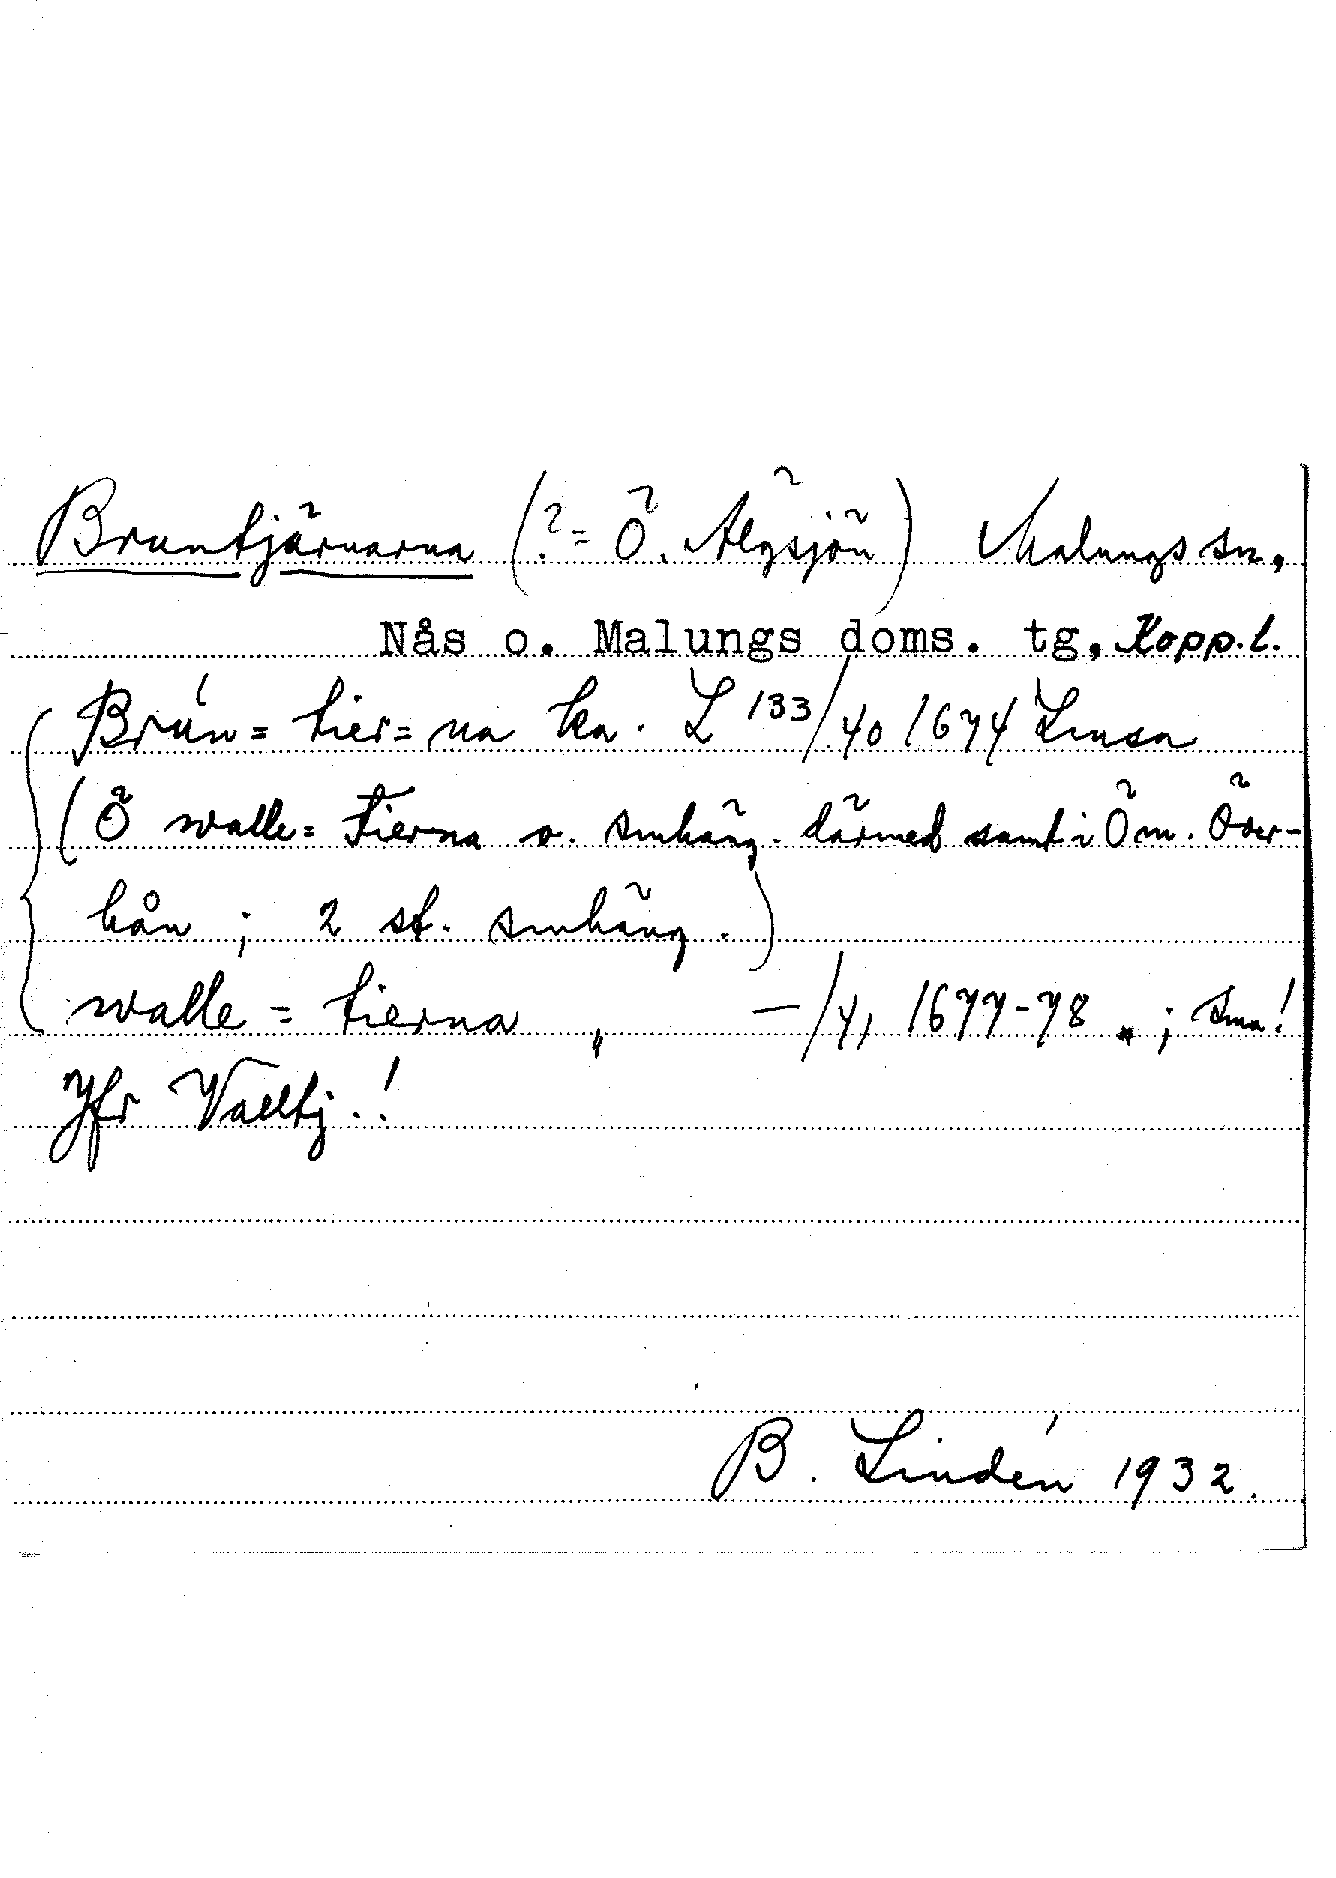 Bruntjärnarna (? = Ö. Älgsjön) Malungs sn,
Nås o. Malungs doms. tg, Kopp.l.
Brún= tier= na ka. L 133/40 1674
(Ö walle= Tierna o. smhäng. därmed samt i Ö m. Över-
hån ; 2 st. smhäng.)
walle = tierna „ —/41 1677-78 „ ; sma!
Jfr Valltj.!
B. Lindén 1932.